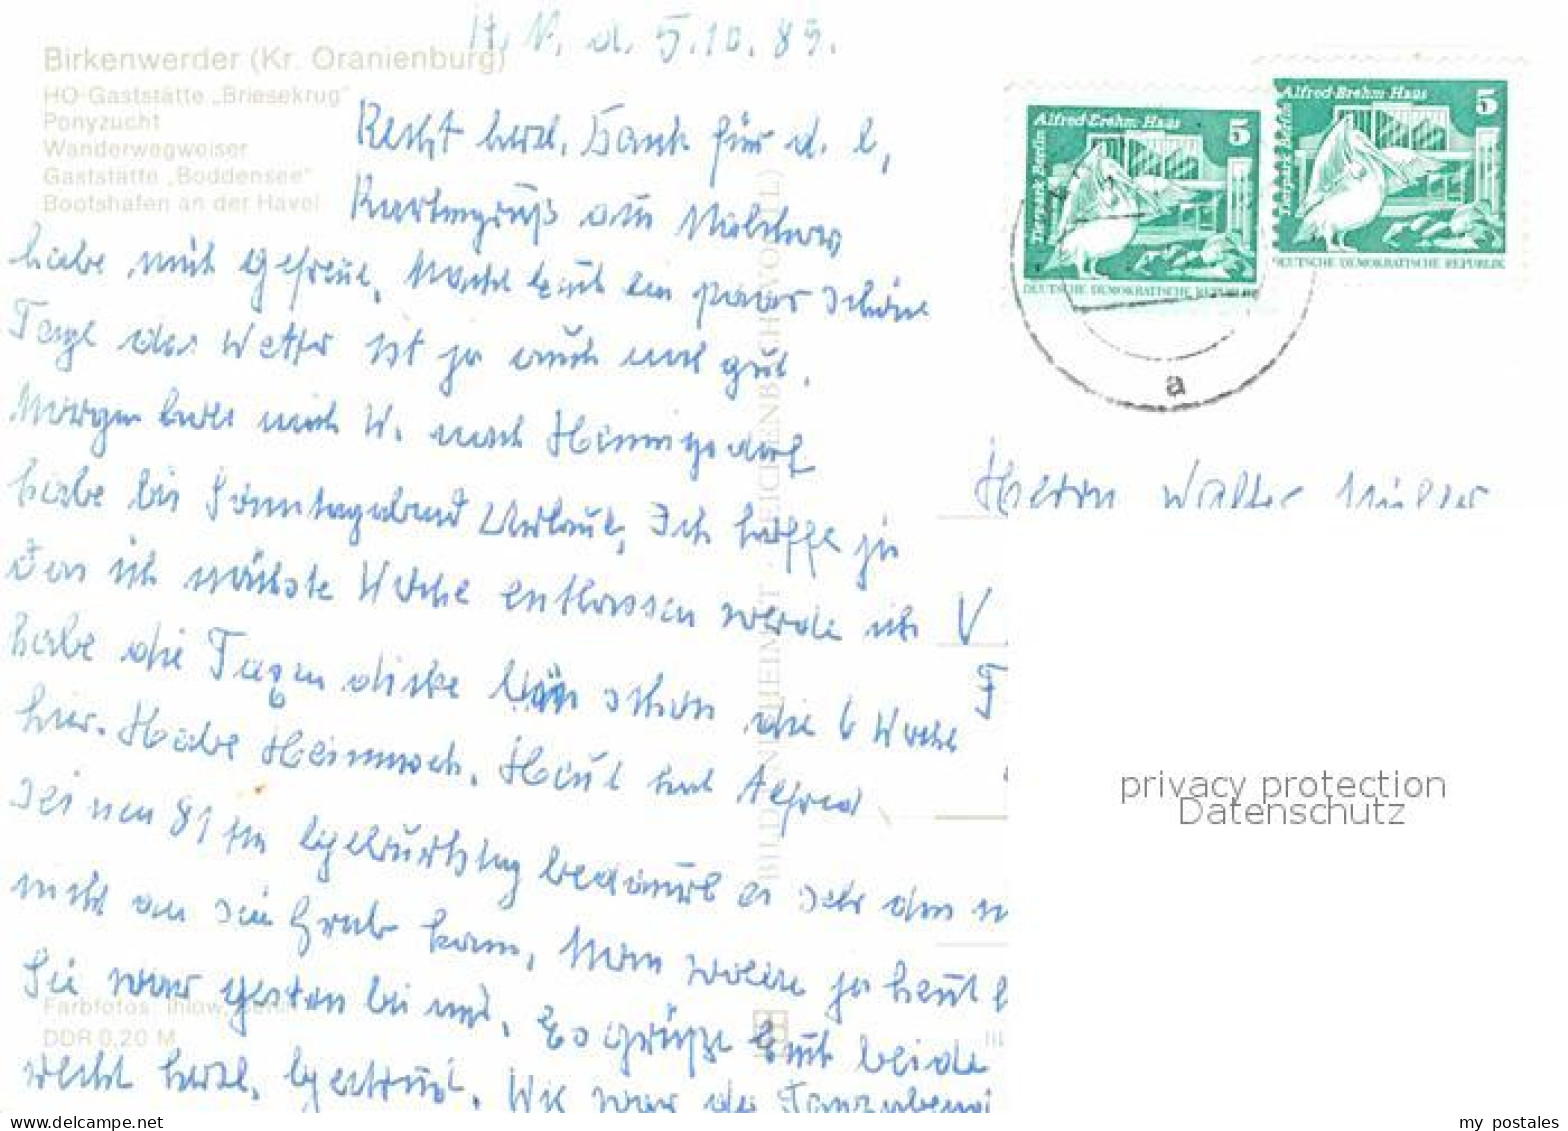 H. N. d. 5.10.89.
Birkenwerder (Kr. Oranienburg)
HO-Gaststätte „Briesekrug"
Ponyzucht
Wanderwegweiser
Gaststätte „Boddensee"
Bootshafen an der Havel
Recht herzl. Dank für d. l.
Kartengruß aus Malchow
habe mich gefreut. Macht Euch ein paar schöne
Tage das Wetter ist ja auch noch gut.
Morgen holt mich W. nach Hennigsdorf
habe bis Sonntagabend Urlaub. Ich hoffe ja
das ich nächste Woche entlassen werde ich
habe die Tagen dicke bin schon die 6 Woche
hier. Habe Heimweh. Heut hat Alfred
seinen 81 ten Geburtstag bedauert es sehr das
nicht an sein Grab kann. Man wollte ja heut
Sie war gestern bei mir. Es grüßt Euch beide
recht herzl. Gertrud. Wie war der Tanzabend
Farbfotos: Ihlow, Berlin
DDR 0,20 M
BILD UND HEIMAT REICHENBACH (VOGTL)
Alfred-Brehm-Haus
5
Tierpark Berlin
DEUTSCHE DEMOKRATISCHE REPUBLIK
Alfred-Brehm-Haus
5
Tierpark Berlin
DEUTSCHE DEMOKRATISCHE REPUBLIK
a
Herrn Walter Müller
V
privacy protection
Datenschutz
delcampe.net
my postales